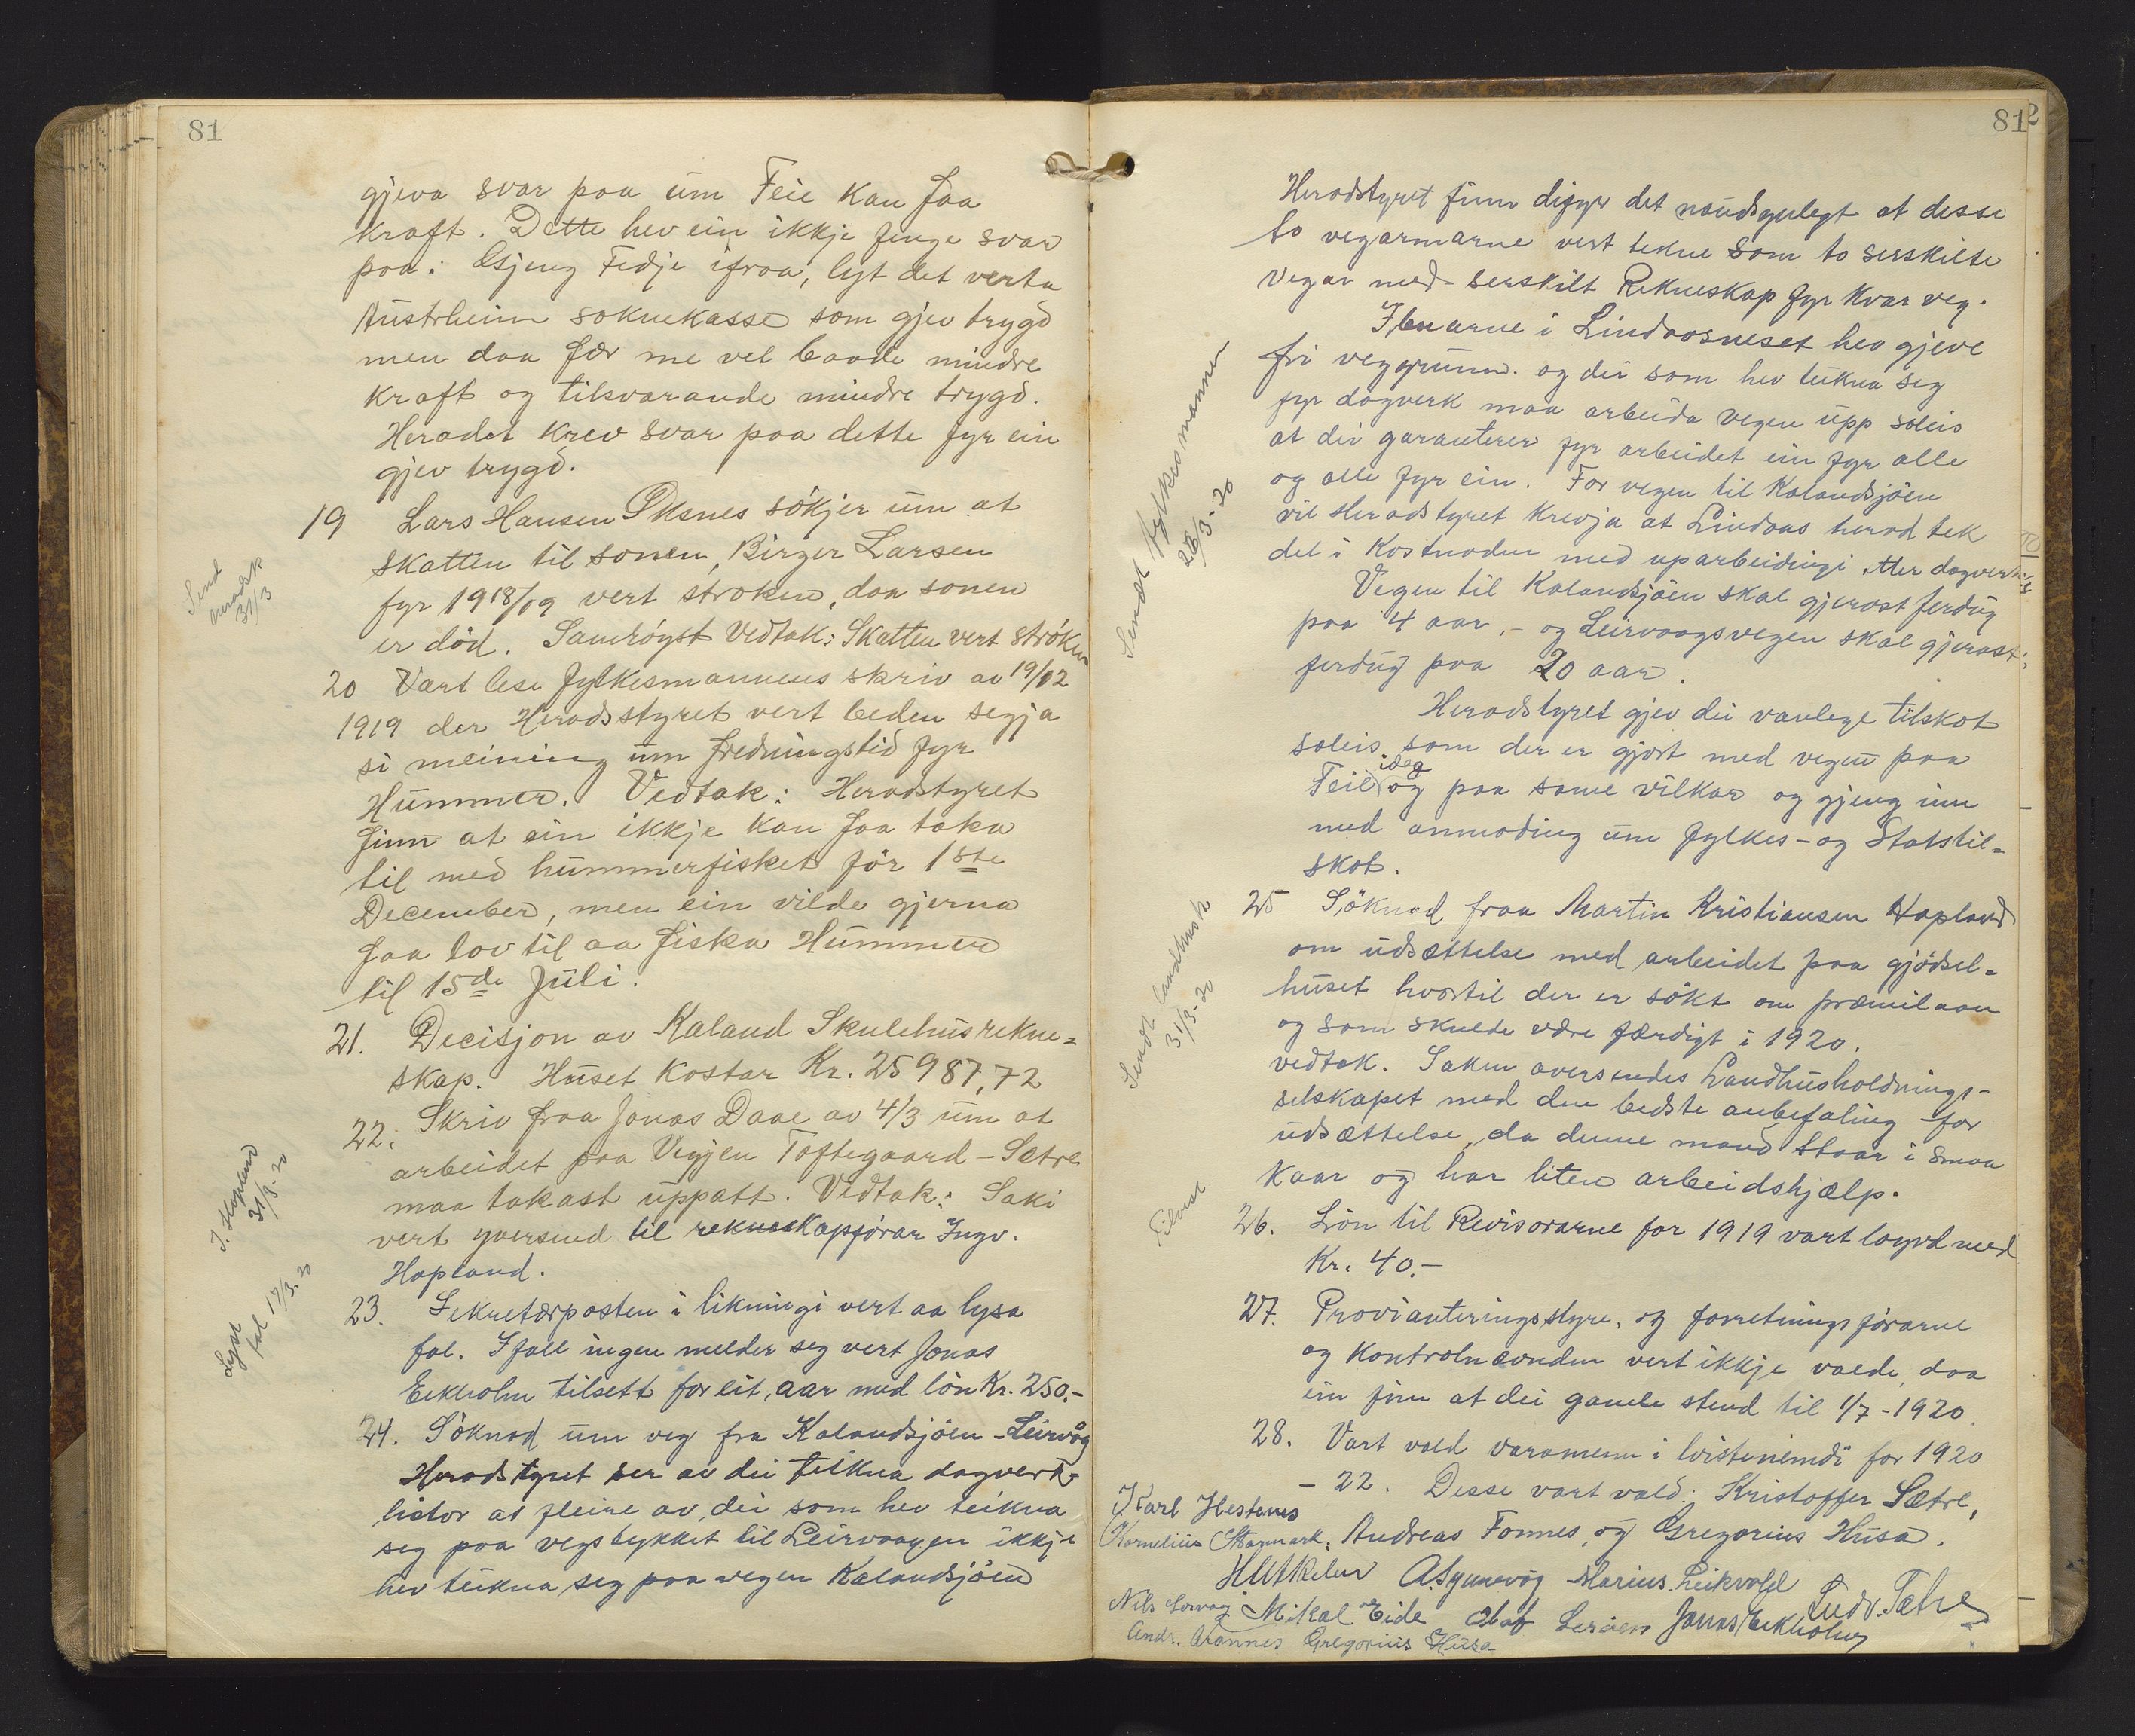 81
gjeva svar paa um Feie kan faa
kraft. Dette hev ein ikkje fenge svar
paa. Gjeng Fedje ifraa, lyt det verta
Austrheim soknekasse som gjev trygd
men daa fær me vel baade mindre
kraft og tilsvarande mindre trygd.
Heradet krev svar paa dette fyr ein
gjev trygd.
19 Lars Hansen Øksnes søkjer um at
skatten til sonen, Birger Larsen
fyr 1918/19 vert stroken, daa sonen
er död. Samröyst Vedtak: Skatten vert ströken
Send
31/3
20 Vart lese Fylkesmannens skriv av 19/12
1919 der Heradsstyret vert beden segja
si meining um fredningstid fyr
Hummer. Vedtak: Heradstyret
finn at ein ikkje kan faa taka
til med hummerfisket för 1ste
December, men ein vilde gjerna
faa lov til aa fiska Hummer
til 15de Juli.
21. Decisjon av Kaland Skulehusrekne=
skap. Huset kostar Kr. 25987,72
22. Skriv fraa Jonas Daae av 4/3 um at
arbeidet paa Vegjen Toftegaard - Sætre
maa takast uppatt. Vedtak: Saki
vert yversend til rekneskapsförar Ingv.
Hopland.
I. Hopland
31/3-20
23. Sekretærposten i likningi vert aa lysa
fol. Ifall ingen melder seg vert Jonas
Eekholm tilsett for eit, aar med lön Kr. 250.-
Lyst
fol 17/3-20
24. Söknad um veg fra Kalandsjöen - Leirvåg
Heradstyret ser av dei teikna dagverk=
listor at fleire av dei som hev teikna
seg paa vegstykket til Leirvaagen ikkje
hev teikna seg paa vegen Kalandsjöen
812
Heradstyret finn difyr det naudsynlegt at desse
to vegarmarne vert tekne som to serskilte
Vegar med serskilt Rekneskap fyr kvar veg.
Ibuarne i Lindaasneset hev gjeve
fri veggrunn. og dei som hev teikna seg
fyr dagverk maa arbeida vegen upp soleis
at dei garanterer fyr arbeidet ein fyr alle
og alle fyr ein. For vegen til Kalandsjöen
vil Heradstyret krevja at Lindaas herad tek
del i Kostnaden med uparbeidingi etter dagverk
Vegen til Kalandsjöen skal gjerast ferdug
paa 4 aar, - og Leirvaagsvegen skal gjerast
ferdug paa 20 aar.
Sendt fylkesmannen
26/3-20
Heradstyret gjev dei vanlege tilskot
soleis som der er gjort med vegen paa
Feie idag og paa same vilkaar og gjeng inn
med anmoding um Fylkes- og Statstil=
skot.
25 Söknad fraa Martin Kristiansen Hopland
om udsættelse med arbeidet paa gjödsel=
huset hvortil der er sökt om præmilaan
og som skulde være færdigt i 1920.
vedtak. Saken oversendes Landhusholdnings-
selskapet med den bedste anbefaling for
udsættelse, da denne mand staar i smaa
kaar og har liten arbeidshjælp.
Sendt landhush
31/3-20
26. Lön til Revisorarne for 1919 vart löyvd med
Kr. 40.-
Tilvist
27. Provianteringsstyre, og forretningsförarne
og kontrolnævnden vert ikkje valde, daa
ein finn at dei gamle stend til 1/7-1920.
28. Vart vald varamenn i tvistenemdi for 1920
- 22. Desse vart vald: Kristoffer Sætre,
Andreas Fonnes, og Gregorius Husa.
Karl Hestenes
Kornelius
A. Synnevåg Marius Leikvold Ludv. Sætre
Nils Mikal Eide Olaf Jonas Eekholm
Andr. Gregorius Husa